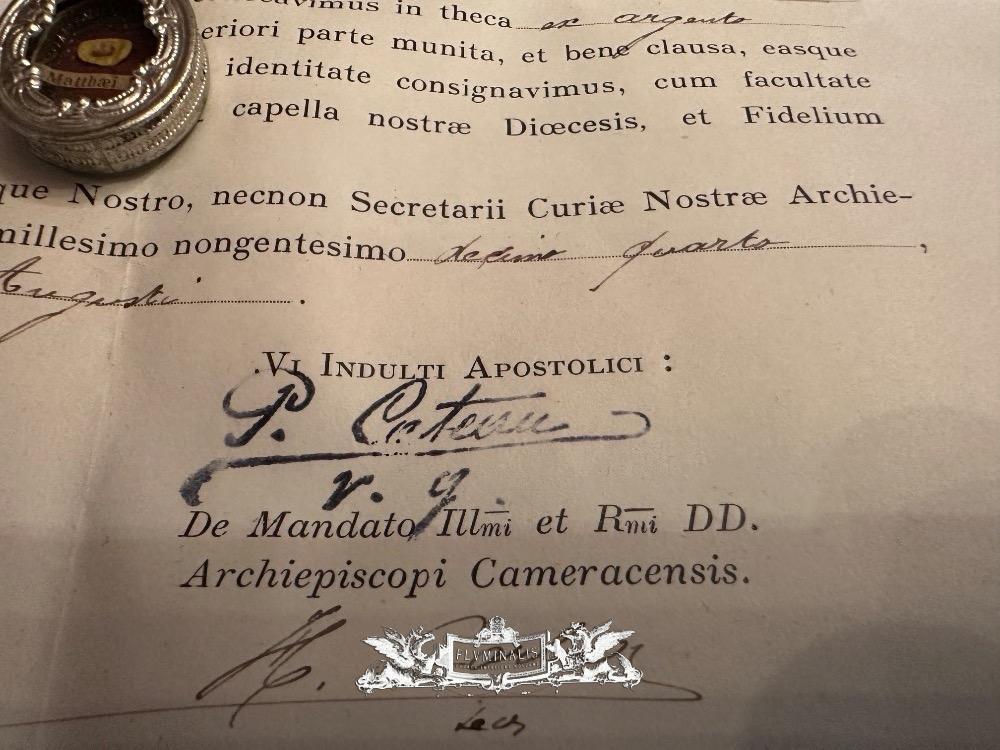 Matthæi
imus in theca ex argento
eriori parte munita, et bene clausa, easque
identitate consignavimus, cum facultate
capella nostræ Diœcesis, et Fidelium
que Nostro, necnon Secretarii Curiæ Nostræ Archie-
millesimo nongentesimo decimo quarto,
Augusti.
VI INDULTI APOSTOLICI :
P. Cateau
v. g.
De Mandato Illmi et Rmi DD.
Archiepiscopi Cameracensis.
FLVMINALIS
secr